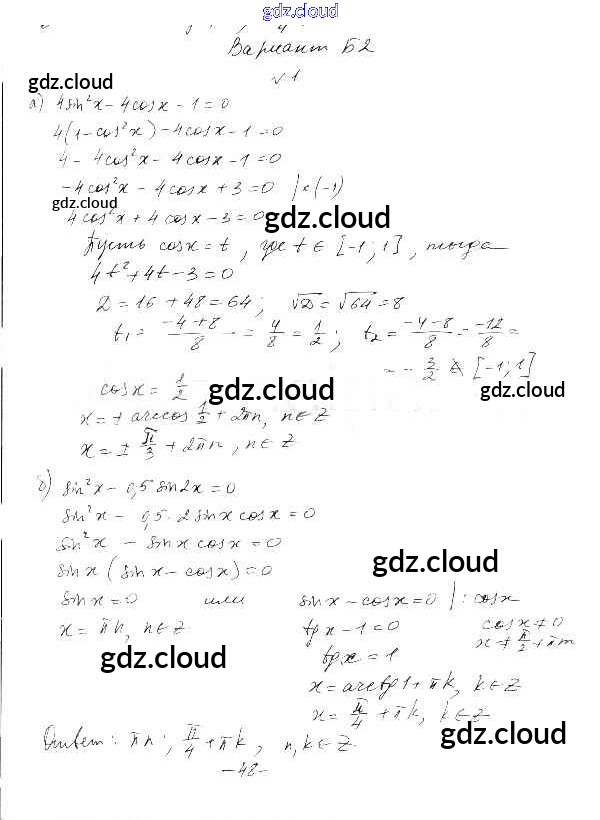 gdz.cloud
Вариант Б2
√1
gdz.cloud
а) 4sin²x - 4cosx - 1 = 0
4(1 - cos²x) - 4cosx - 1 = 0
4 - 4cos²x - 4cosx - 1 = 0
-4cos²x - 4cosx + 3 = 0 |×(-1)
gdz.cloud
4cos²x + 4cosx - 3 = 0
gdz.cloud
Пусть cosx = t, где t ∈ [-1; 1], тогда
4t² + 4t - 3 = 0
D = 16 + 48 = 64; √D = √64 = 8
t₁ = (-4+8)/8 = 4/8 = 1/2; t₂ = (-4-8)/8 = -12/8 =
= -3/2 ∉ [-1; 1]
cosx = 1/2
gdz.cloud
gdz.cloud
x = ± arccos 1/2 + 2πn, n ∈ Z
x = ± π/3 + 2πn, n ∈ Z
б) sin²x - 0,5 sin2x = 0
sin²x - 0,5 · 2sinx cosx = 0
sin²x - sinx cosx = 0
gdz.cloud
sinx (sinx - cosx) = 0
sinx = 0 или sinx - cosx = 0 |: cosx
x = πn, n ∈ Z tgx - 1 = 0 cosx ≠ 0
x ≠ π/2 + πm
gdz.cloud
tgx = 1
x = arctg1 + πk, k ∈ Z
x = π/4 + πk, k ∈ Z
Ответ: πn; π/4 + πk, n, k ∈ Z.
gdz.cloud
-48-